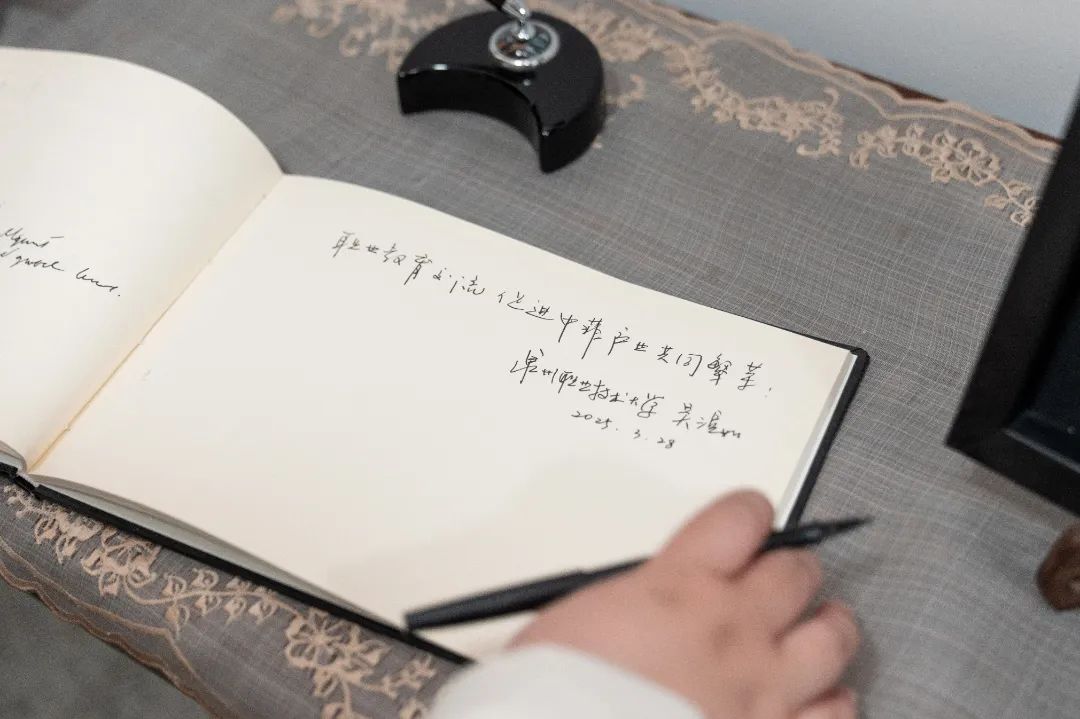 职业教育交流 促进中菲产业共同繁荣！
泉州职业技术大学 吴滨如
2025.3.28